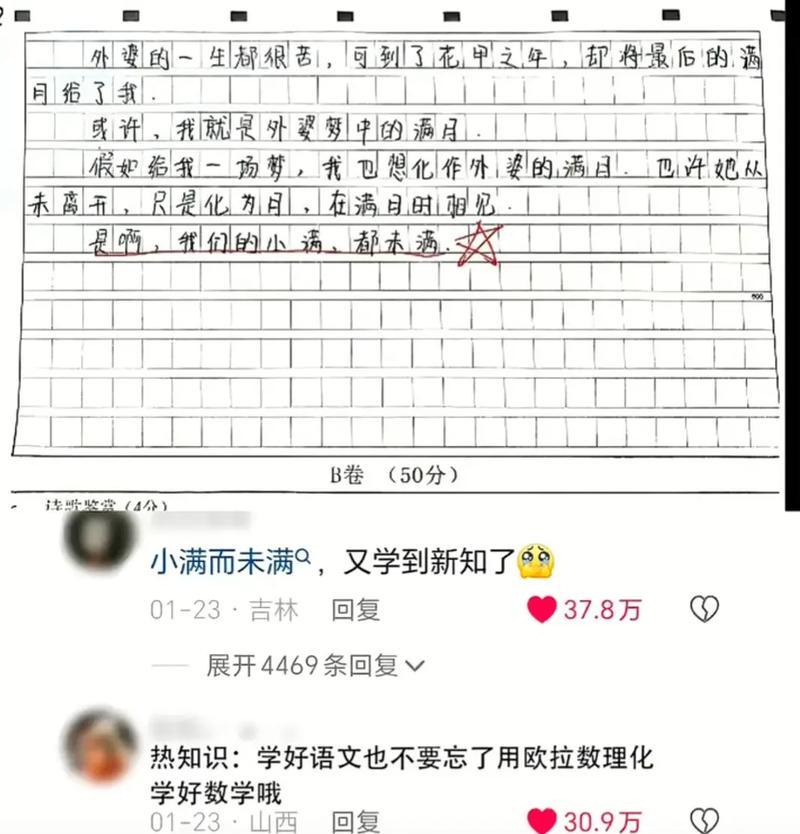 外婆的一生都很苦，可到了花甲之年，却将最后的满
月给了我.
或许，我就是外婆梦中的满月.
假如给我一场梦，我也想化作外婆的满月. 也许她从
未离开，只是化为月，在满月时相见.
是啊，我们的小满、都未满.
600
B卷 （50分）
诗歌鉴赏（4分）
小满而未满，又学到新知了🥹
01-23 · 吉林 回复 37.8万
展开4469条回复
热知识：学好语文也不要忘了用欧拉数理化
学好数学哦
01-23 · 山西 回复 30.9万